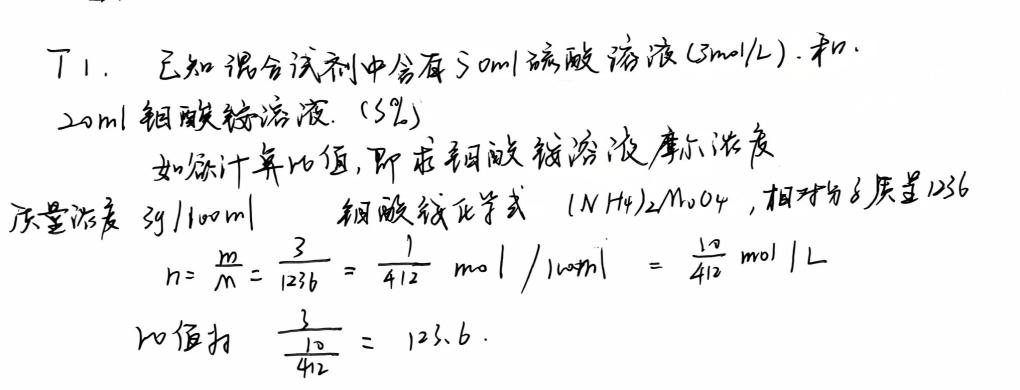 T1. 已知混合试剂中含有50ml硫酸溶液(3mol/L).和.
20ml钼酸铵溶液.(3%)
如欲计算比值,即求钼酸铵溶液摩尔浓度
质量浓度 3g/100ml 钼酸铵化学式 (NH4)2MoO4,相对分子质量1236
n = m/M = 3/1236 = 1/412 mol/100ml = 10/412 mol/L
比值为 3/(10/412) = 123.6.